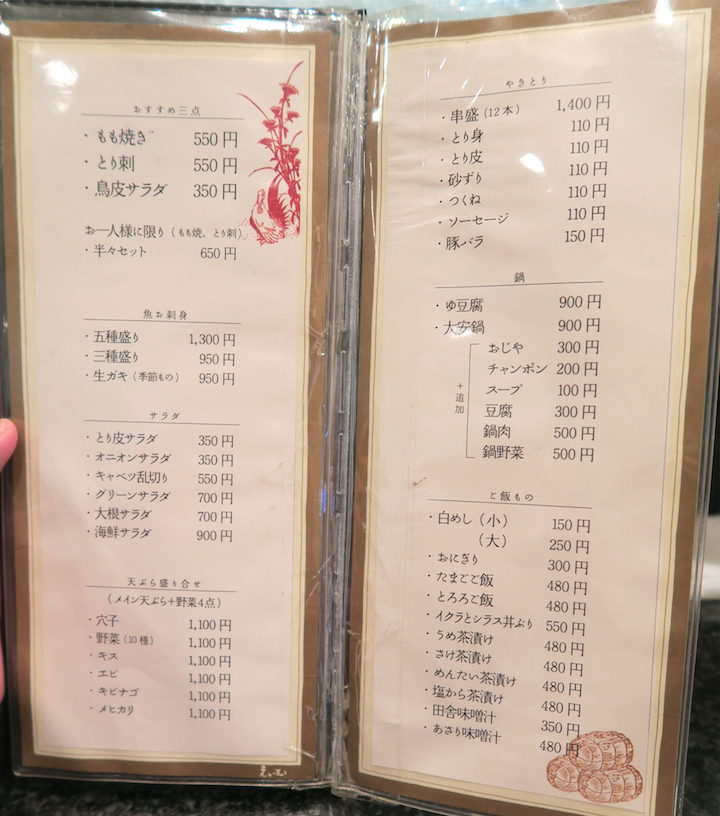 おすすめ三点
・もも焼き 550円
・とり刺 550円
・鳥皮サラダ 350円
お一人様に限り（もも焼、とり刺）
・半々セット 650円
魚お刺身
・五種盛り 1,300円
・三種盛り 950円
・生ガキ（季節もの） 950円
サラダ
・とり皮サラダ 350円
・オニオンサラダ 350円
・キャベツ乱切り 550円
・グリーンサラダ 700円
・大根サラダ 700円
・海鮮サラダ 900円
天ぷら盛り合せ
（メイン天ぷら+野菜4点）
・穴子 1,100円
・野菜（10種） 1,100円
・キス 1,100円
・エビ 1,100円
・キビナゴ 1,100円
・メヒカリ 1,100円
やきとり
・串盛（12本） 1,400円
・とり身 110円
・とり皮 110円
・砂ずり 110円
・つくね 110円
・ソーセージ 110円
・豚バラ 150円
鍋
・ゆ豆腐 900円
・大安鍋 900円
+追加
おじや 300円
チャンポン 200円
スープ 100円
豆腐 300円
鍋肉 500円
鍋野菜 500円
ご飯もの
・白めし（小） 150円
（大） 250円
・おにぎり 300円
・たまごご飯 480円
・とろろご飯 480円
・イクラとシラス丼ぶり 550円
・うめ茶漬け 480円
・さけ茶漬け 480円
・めんたい茶漬け 480円
・塩から茶漬け 480円
・田舎味噌汁 350円
・あさり味噌汁 480円